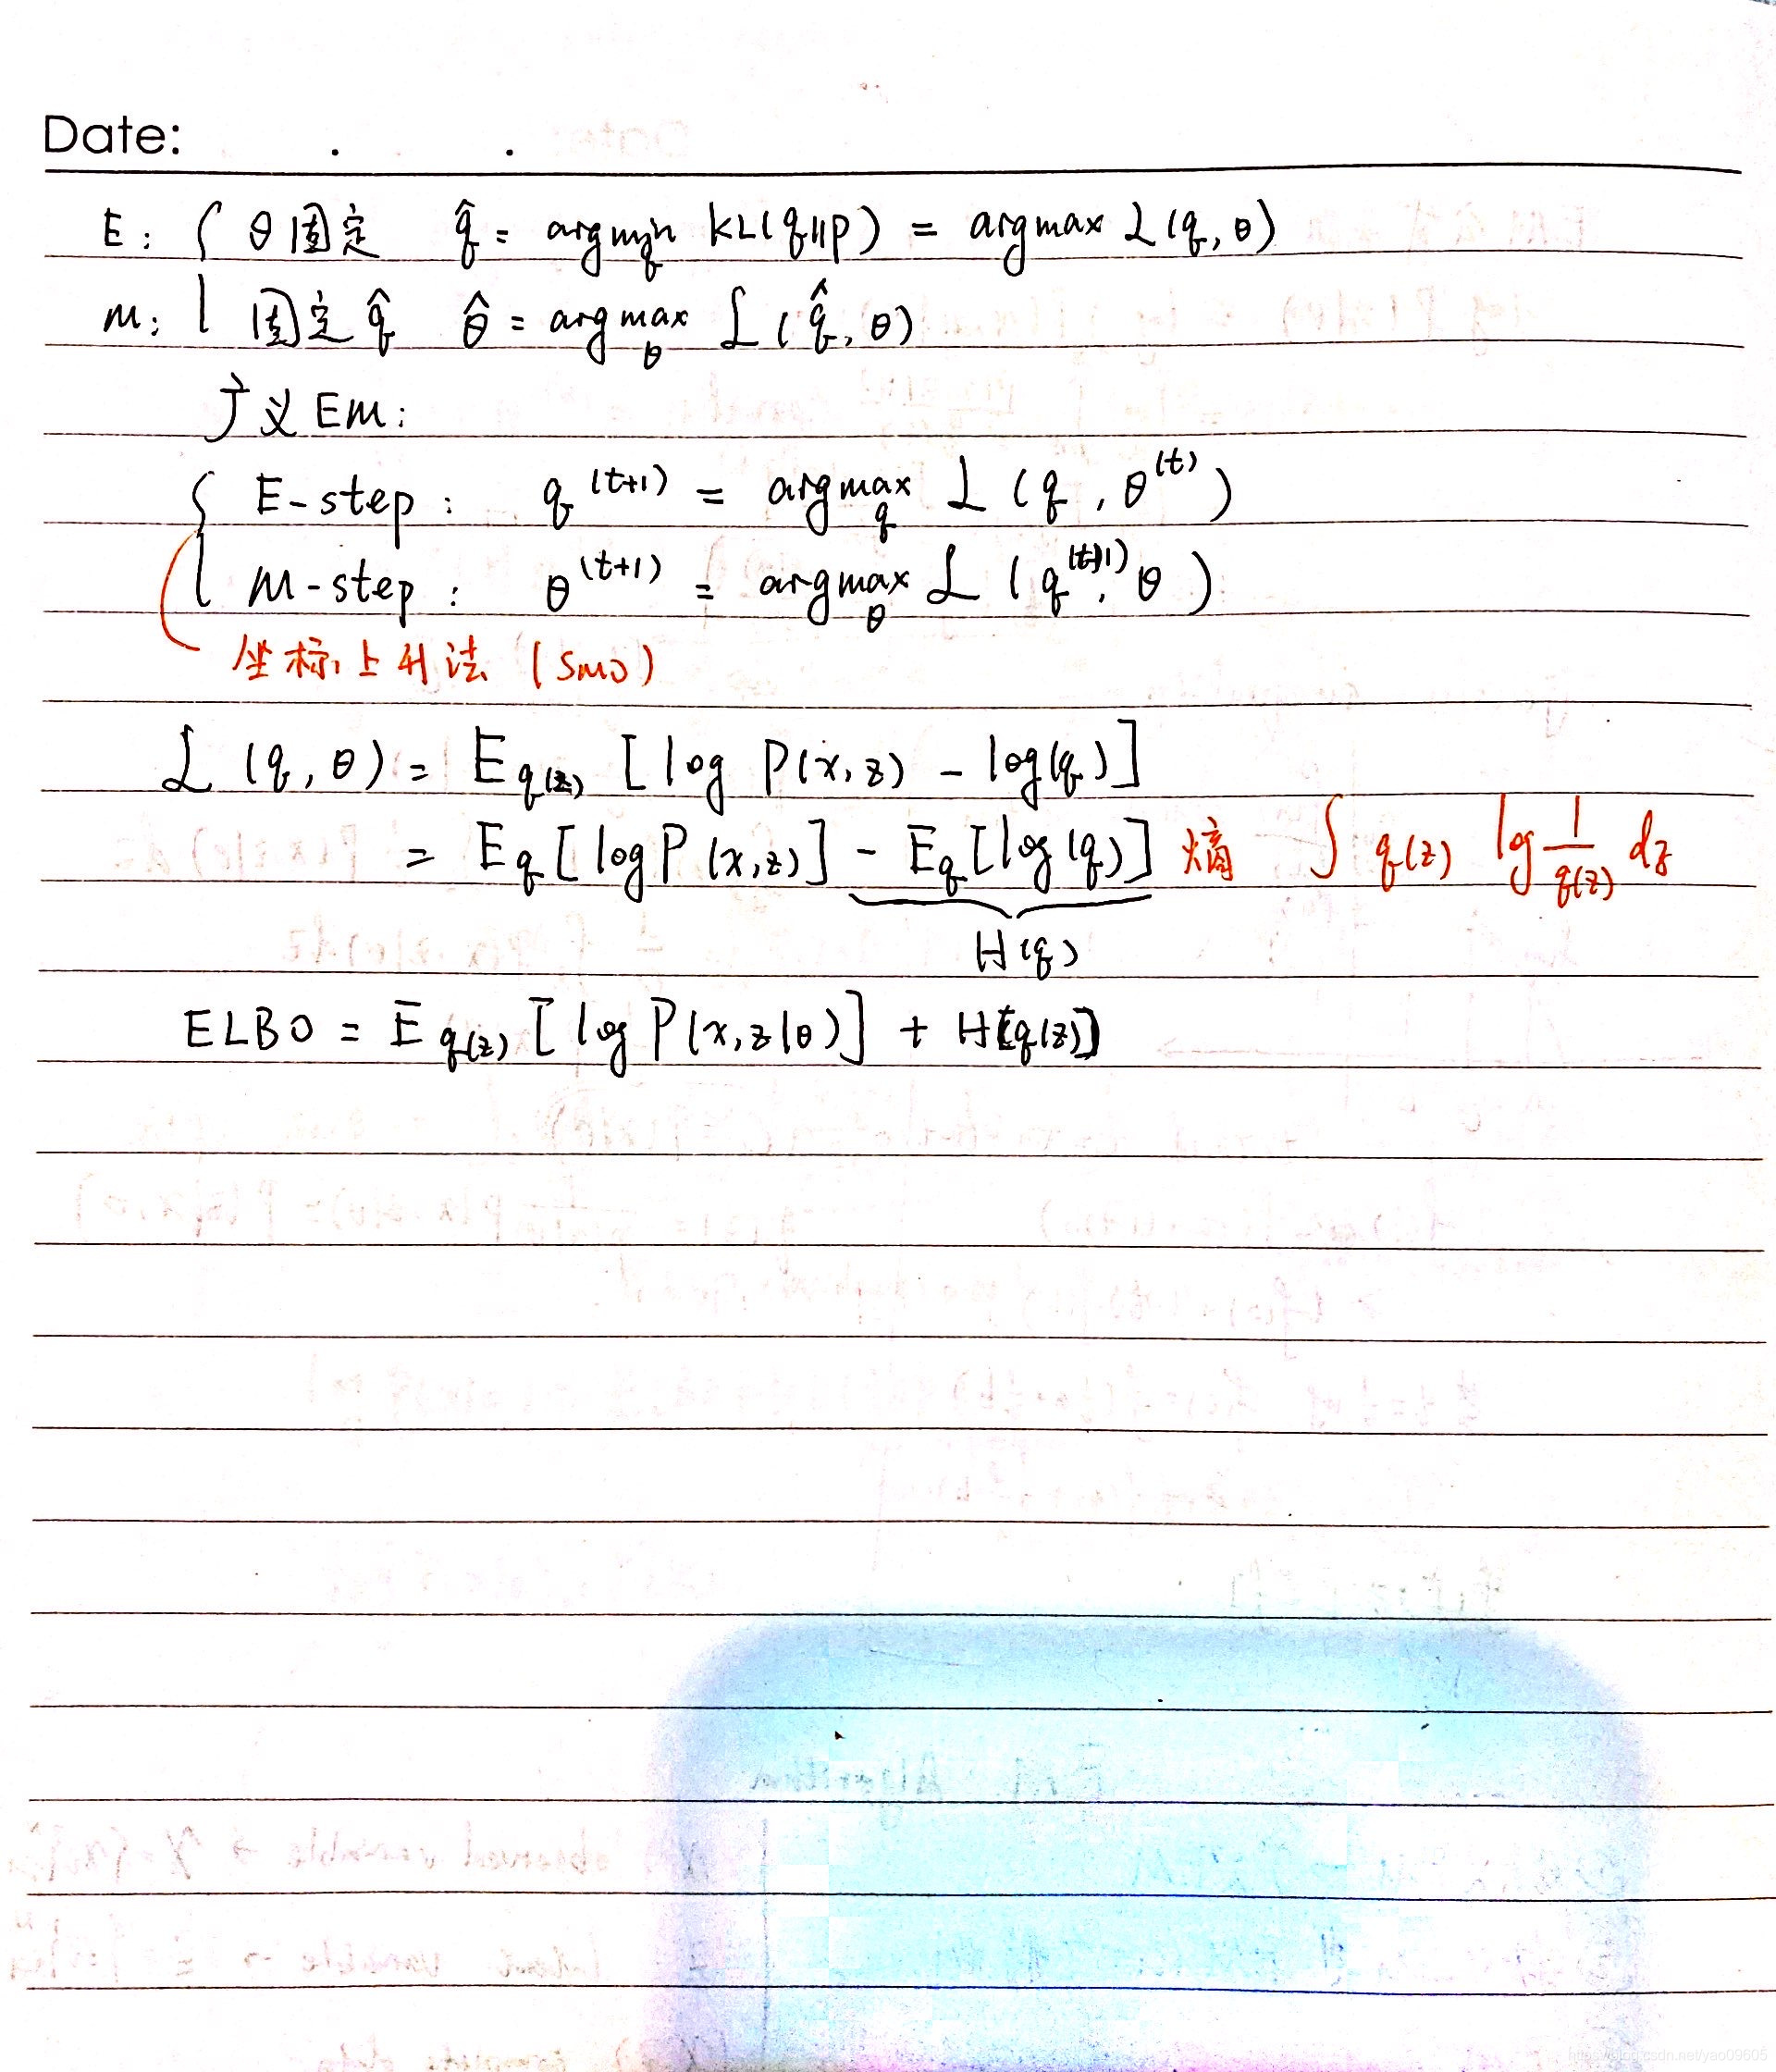 Date: . .
E: { θ固定 q̂ = argmin_q KL(q||p) = argmax L(q, θ)
M: 固定 q̂ θ̂ = argmax_θ L(q̂, θ)
广义EM:
{ E-step: q^(t+1) = argmax_q L(q, θ^(t))
M-step: θ^(t+1) = argmax_θ L(q^(t+1), θ)
坐标上升法 (SMO)
L(q, θ) = E_q(z) [log P(x, z) - log(q)]
= E_q [log P(x, z)] - E_q [log(q)] 熵 ∫ q(z) log 1/q(z) dz
H(q)
ELBO = E_q(z) [log P(x, z|θ)] + H[q(z)]
https://blog.csdn.net/yao09605